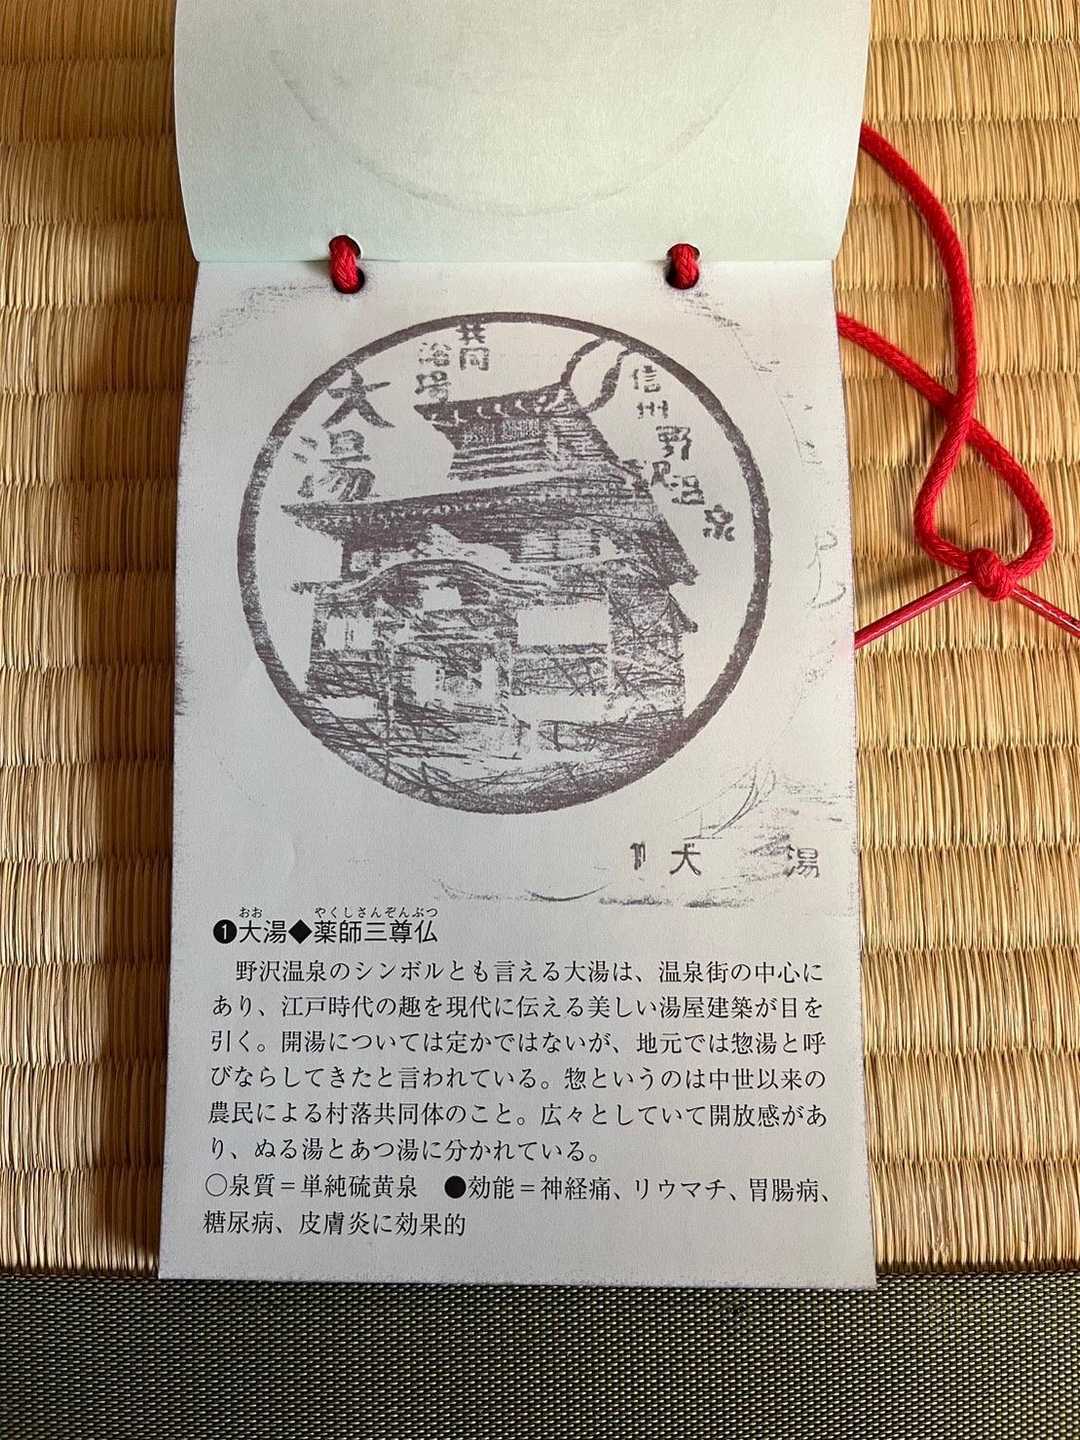 共同
浴場
大湯
信州
野沢温泉
大 湯
❶大湯◆薬師三尊仏
おお やくしさんぞんぶつ
野沢温泉のシンボルとも言える大湯は、温泉街の中心に
あり、江戸時代の趣を現代に伝える美しい湯屋建築が目を
引く。開湯については定かではないが、地元では惣湯と呼
びならしてきたと言われている。惣というのは中世以来の
農民による村落共同体のこと。広々としていて開放感があ
り、ぬる湯とあつ湯に分かれている。
○泉質＝単純硫黄泉　●効能＝神経痛、リウマチ、胃腸病、
糖尿病、皮膚炎に効果的